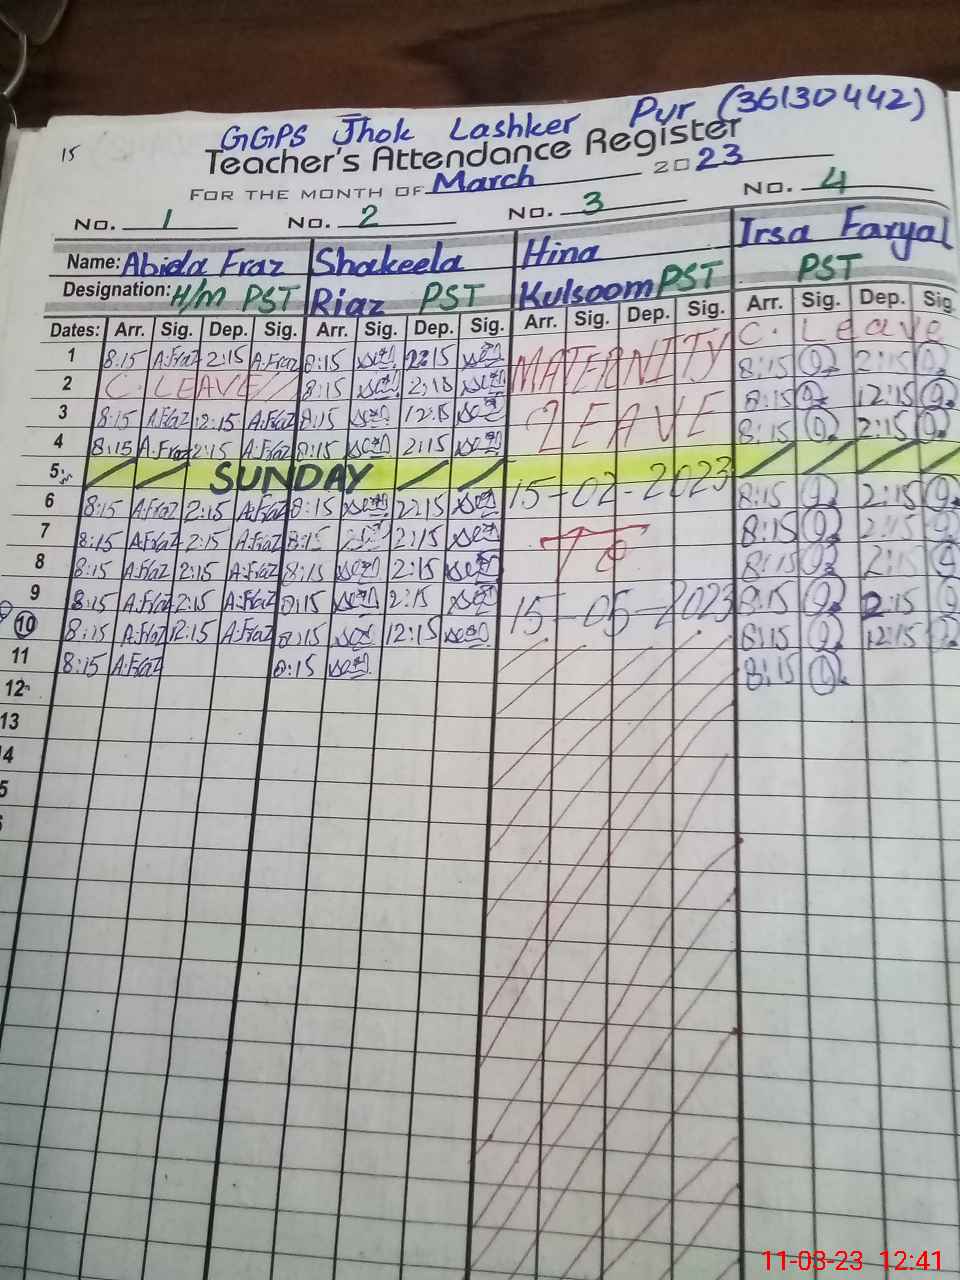 15
GGPS Jhok Lashker Pur (36130442)
Teacher's Attendance Register
FOR THE MONTH OF March 2023
No. 1 No. 2 No. 3 No. 4
Name: Abida Fraz Shakeela Hina Irsa Faryal
Designation: H/M PST Riaz PST Kulsoom PST PST
Dates: Arr. Sig. Dep. Sig. Arr. Sig. Dep. Sig. Arr. Sig. Dep. Sig. Arr. Sig. Dep. Sig
1 8:15 A.Fraz 2:15 A.Fraz 8:15 2:15 MATERNITY C. Leave
2 C. LEAVE 8:15 2:15 8:15 2:15
3 8:15 A.Fraz 12:15 A.Fraz 8:15 12:15 LEAVE 8:15 12:15
4 8:15 A.Fraz 2:15 A.Fraz 8:15 2:15 8:15 2:15
5 SUNDAY
6 8:15 A.Fraz 2:15 A.Fraz 8:15 2:15 15-02-2023 8:15 2:15
7 8:15 A.Fraz 2:15 A.Fraz 8:15 2:15 To 8:15 2:15
8 8:15 A.Fraz 2:15 A.Fraz 8:15 2:15 8:15 2:15
9 8:15 A.Fraz 2:15 A.Fraz 8:15 2:15 15-05-2023 8:15 2:15
10 8:15 A.Fraz 12:15 A.Fraz 8:15 12:15 8:15 12:15
11 8:15 A.Fraz 8:15 8:15
12
13
4
5
11-03-23 12:41